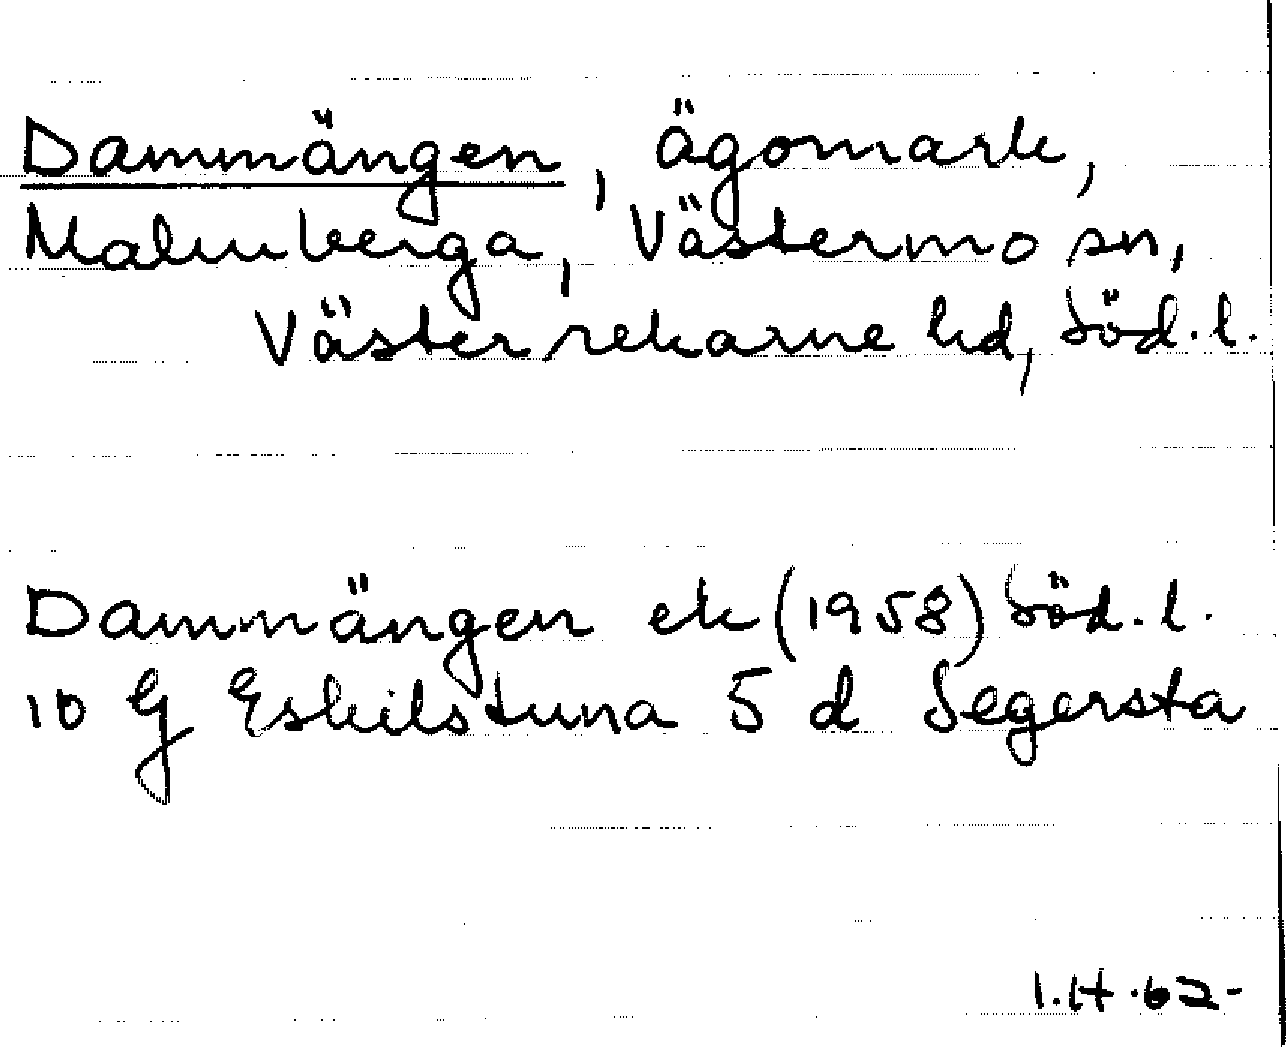 Dammängen, ägomark,
Malmberga, Västermo sn,
Västerrekarne hd, Söd. l.
Dammängen ek (1958) Söd. l.
10 G Eskilstuna 5 d Segersta
I.H.62-